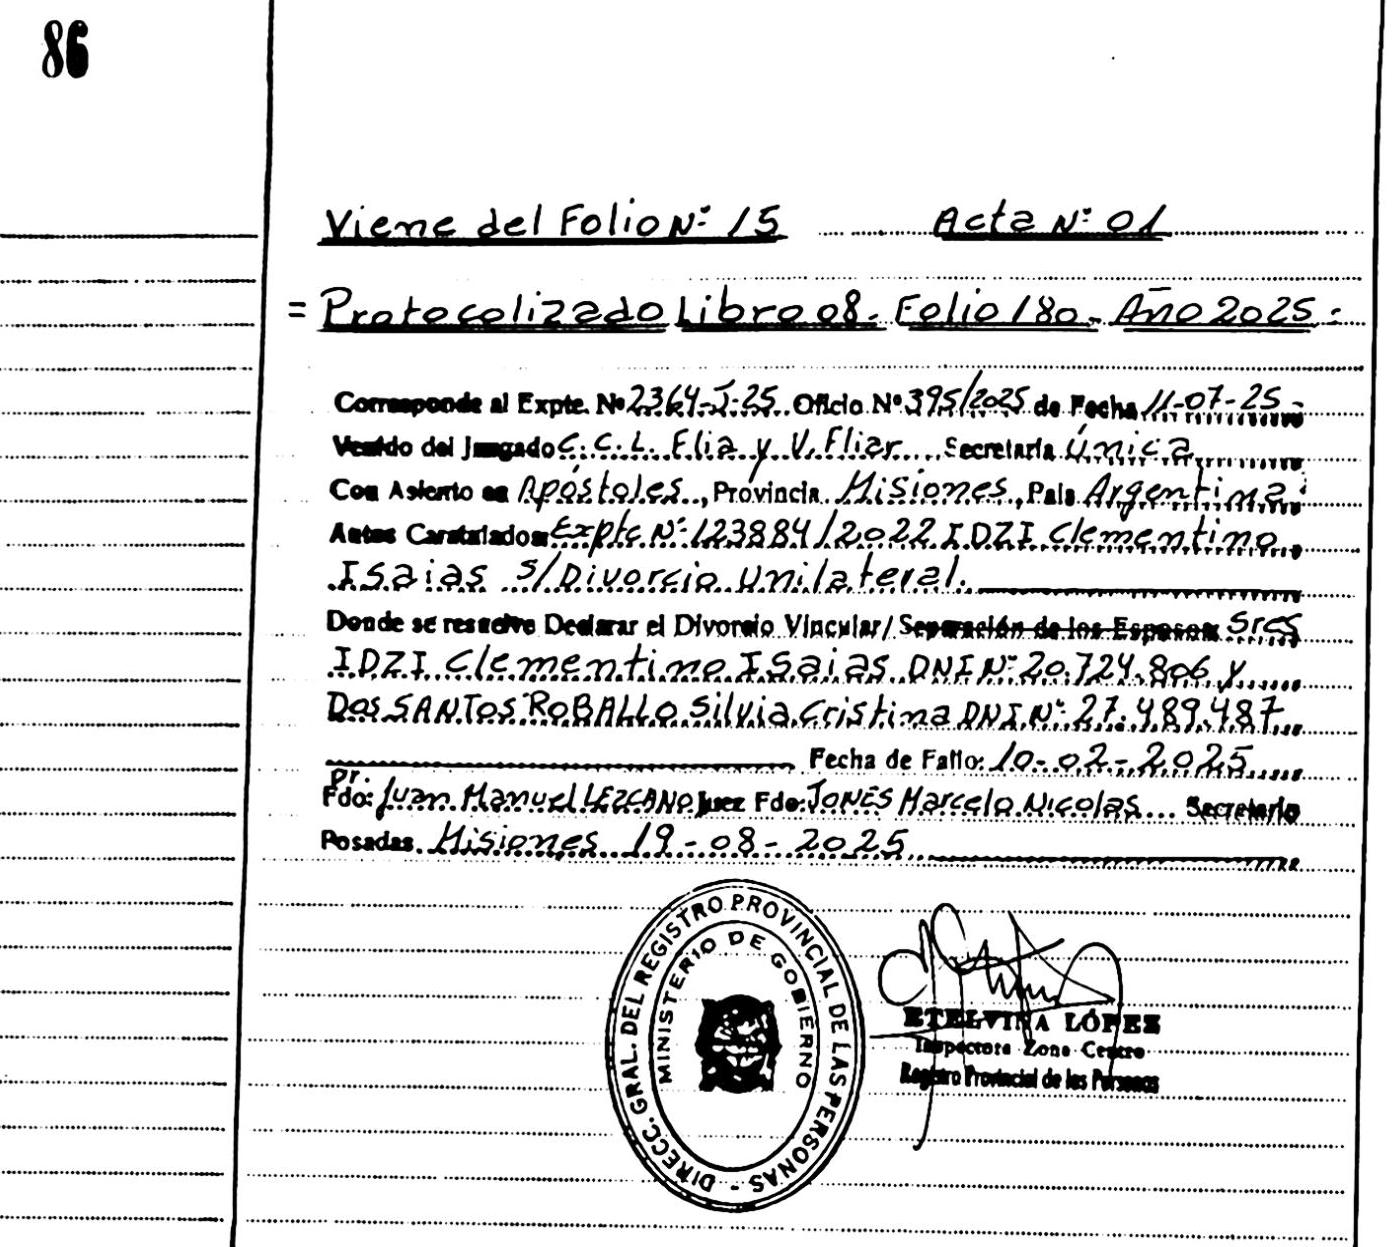 86
Viene del Folio Nº 15 Acta Nº 01
= Protocolizado Libro 08- Folio 180- Año 2025:
Corresponde al Expte. Nº 2364-I-25 Oficio Nº 395/2025 de Fecha 11-07-25-
Venido del Juzgado C.C.L. Flia y V. Fliar Secretaría Única
Con Asiento en Apóstoles, Provincia Misiones, País Argentina
Autos Caratulados: Expte Nº 123884/2022 IDZI Clementino
Isaias s/Divorcio Unilateral.
Donde se resuelve Declarar el Divorcio Vincular/ Separación de los Esposos: Sres
IDZI Clementino Isaias DNI Nº 20.724.806 y
Dos SANTOS ROBALLO Silvia Cristina DNI Nº 27.489.487
Fecha de Fallo: 10-02-2025
Dr.
Fdo: Juan Manuel LEZCANO Juez Fdo: JONES Marcelo Nicolas Secretario
Posadas. Misiones 19-08-2025
DIRECC. GRAL. DEL REGISTRO PROVINCIAL DE LAS PERSONAS -
MINISTERIO DE GOBIERNO
ETELVINA LÓPEZ
Inspectora Zona Centro
Registro Provincial de las Personas